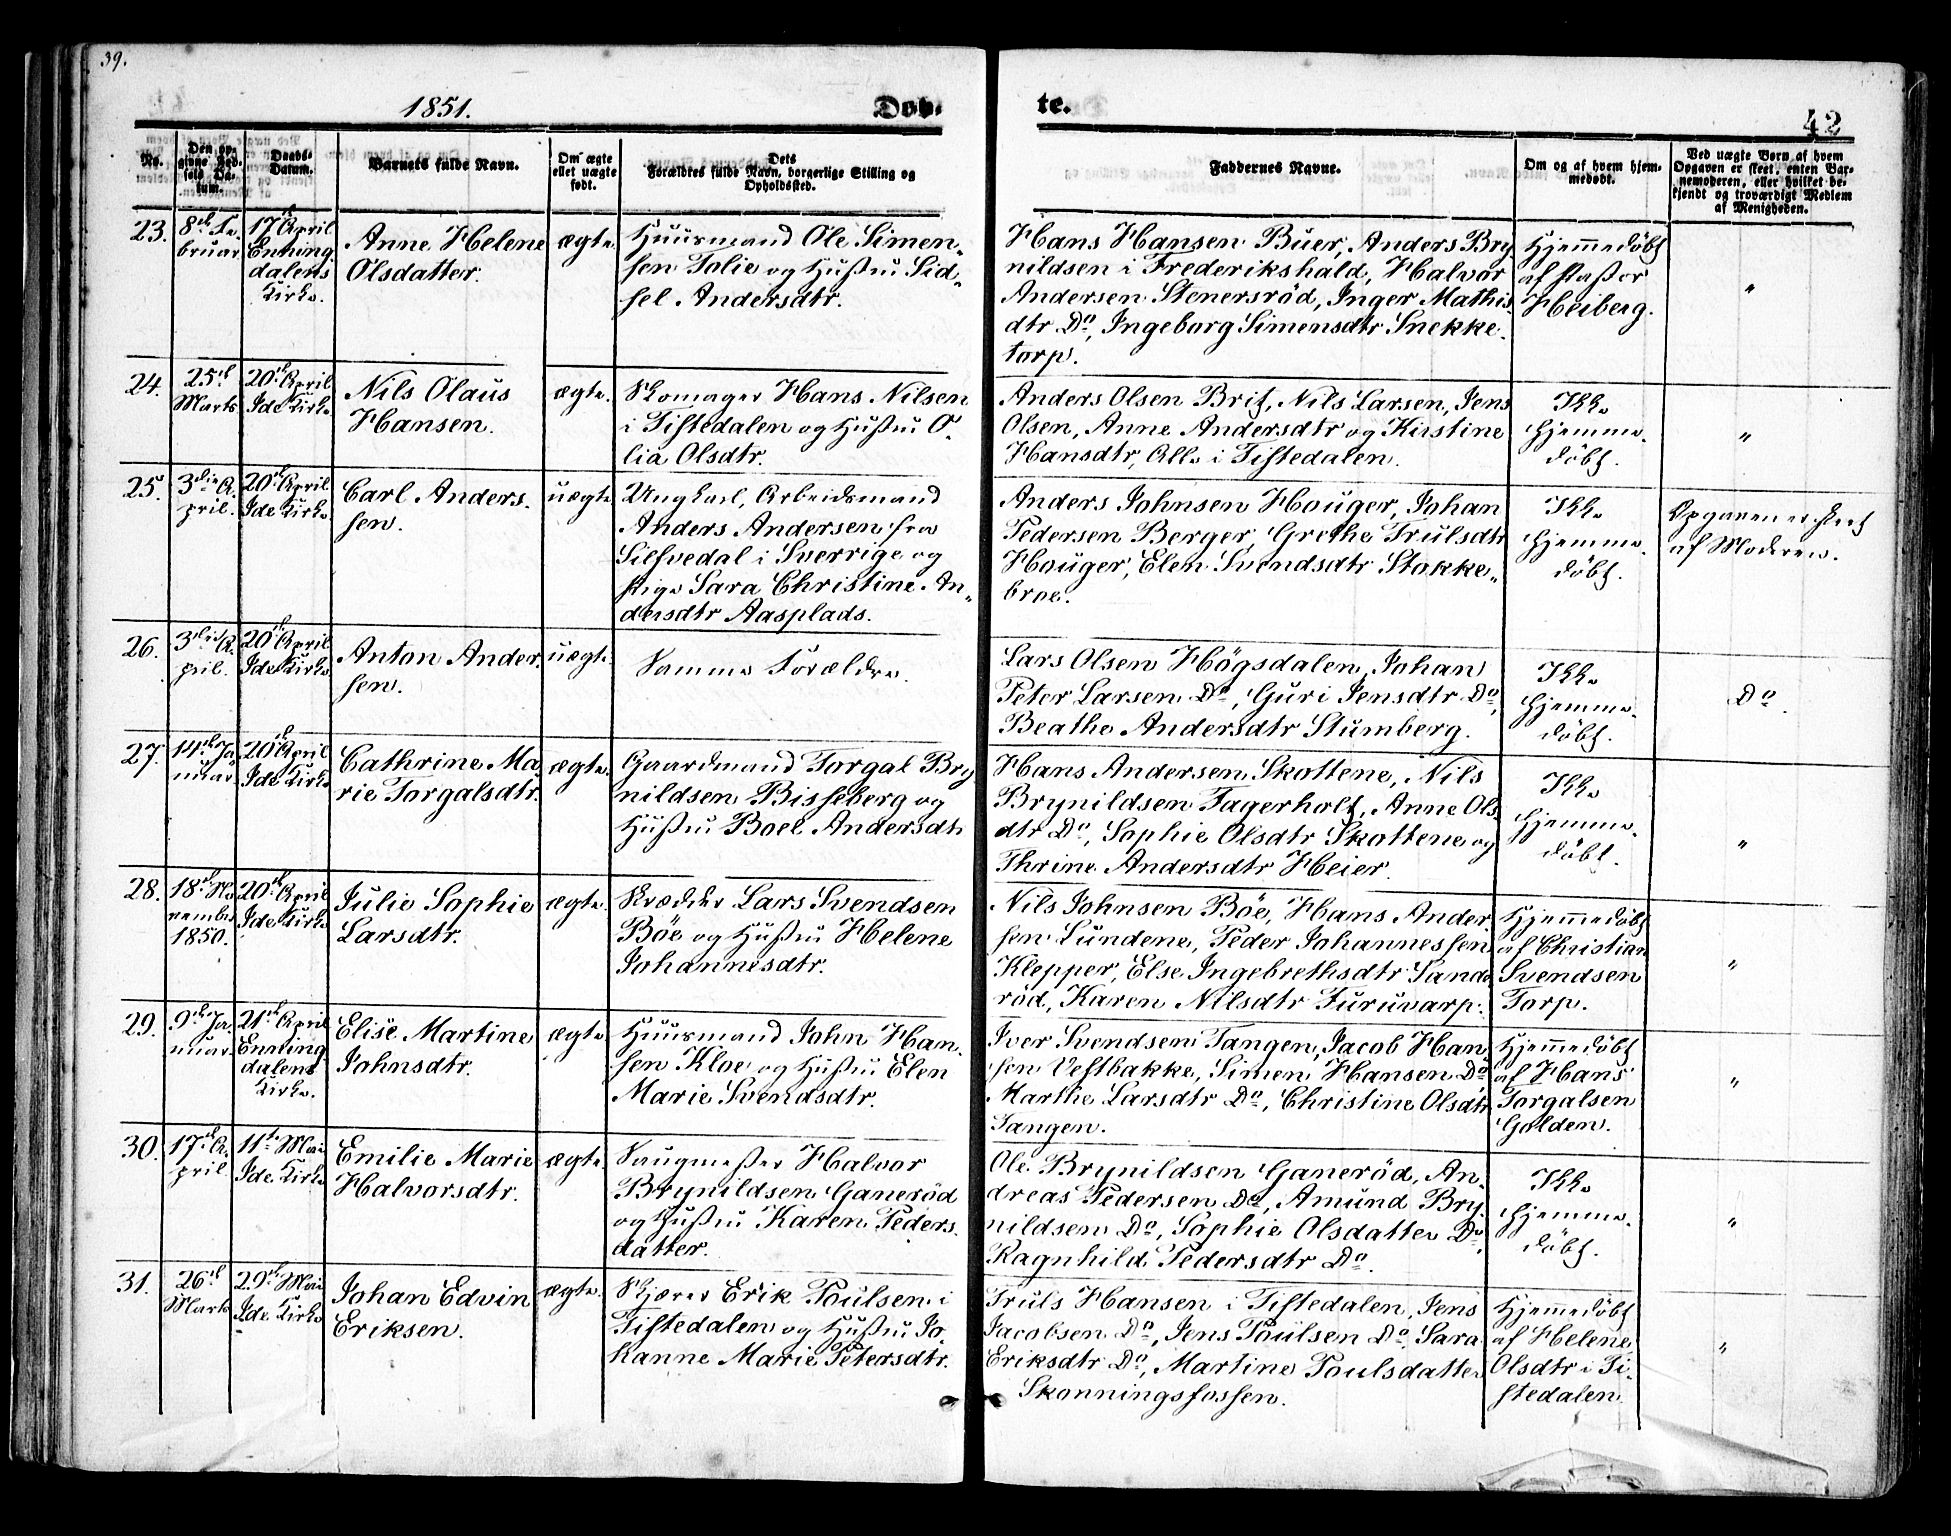 39.
1851.
Døb-
te.
42
No.
Den op-
givne Fød-
sels Da-
tum.
Daabs-
Datum.
Barnets fulde Navn.
Om ægte
eller uægte
født.
Dets
Forældres fulde Navn, borgerlige Stilling og
Opholdssted.
Faddernes Navne.
Om og af hvem hjem-
medøbt.
Ved uægte Børn af hvem
Opgaven er skeet, enten Bar-
nemoderen, eller hvilket be-
kjendt og troværdigt Medlem
af Menigheden.
23.
8de Fe-
bruar
17de April
Enning-
dalens
Kirke.
Anne Helene
Olsdatter.
ægte.
Huusmand Ole Simen-
sen Tolie og Hustru Sid-
sel Andersdtr.
Hans Hansen Buer, Anders Bry
nildsen i Frederikshald, Halvor
Andersen Stenersröd, Inger Mathis
dtr Do, Ingeborg Simensdtr Snekke-
torp.
Hjemmedøbt
af Pastor
Heiberg.
"
24.
25de
Marts
20de April
Ide Kirke
Nils Olaus
Hansen.
ægte.
Skomager Hans Nilsen
i Tistedalen og Hustru O-
lia Olsdtr.
Anders Olsen Brit, Nils Larsen, Jens
Olsen, Anne Andersdtr og Kirstine
Hansdtr, Alle i Tistedalen.
Ikke
hjemme-
døbt.
"
25.
3die A-
pril.
20de April
Ide Kirke
Carl Anders-
sen.
uægte
Ungkarl, Arbeidsmand
Anders Andersen fra
Silfvedal i Sverrige og
Pige Sara Christine An-
dersdtr Aasplads.
Anders Johnsen Houger, Johan
Pedersen Berger, Grethe Trulsdtr
Houger, Elen Svendsdtr Stokke-
broe.
Ikke
hjemme-
døbt.
Opgaven er skeet
af Moderen.
26.
3die A-
pril.
20de April
Ide Kirke
Anton Ander-
sen.
uægte.
Samme Forældre.
Lars Olsen Högsdalen, Johan
Peter Larsen Do, Guri Jensdtr Do,
Beathe Andersdtr Stumberg.
Ikke
hjemme-
døbt.
Do.
27.
14de Ja-
nuar
20de April
Ide Kirke
Cathrine Ma-
rie Torgalsdtr.
ægte.
Gaardmand Torgal Bry
nildsen Bisseberg og
Hustru Boel Andersdtr
Hans Andersen Skottene, Nils
Brynildsen Fagerholt, Anne Ols-
dtr Do, Sophie Olsdtr Skottene og
Thrine Andersdtr Heier.
Ikke
hjemme-
døbt.
"
28.
18de No-
vember
1850.
20de April
Ide Kirke
Julie Sophie
Larsdtr.
ægte.
Skrædder Lars Svendsen
Böe og Hustru Helene
Johannesdtr.
Nils Johnsen Böe, Hans Ander-
sen Lundene, Peder Johannessen
Klepper, Else Ingebrethsdtr Sand-
röd, Karen Nilsdtr Furuvarp.
Hjemmedøbt
af Christian
Svendsen
Torp.
"
29.
9de Ja-
nuar
21de April
Enning-
dalens
Kirke.
Elise Martine
Johnsdtr.
ægte.
Huusmand John Han-
sen Kloe og Hustru Elen
Marie Svendsdtr.
Iver Svendsen Tangen, Jacob Han-
sen Vestbakke, Simen Hansen Do,
Marthe Larsdtr Do, Christine Olsdtr
Tangen.
Hjemmedøbt
af Hans
Torgalsen
Golden.
"
30.
17de A-
pril
11te Mai
Ide Kirke
Emilie Marie
Halvorsdtr.
ægte.
Saugmester Halvor
Brynildsen Ganeröd
og Hustru Karen Peders-
datter.
Ole Brynildsen Ganeröd, An-
dreas Pedersen Do, Amund Bry-
nildsen Do, Sophie Olsdatter Do,
Ragnhild Pedersdtr Do.
Ikke
hjemme-
døbt.
"
31.
26de
Marts
29de Mai
Ide Kirke
Johan Edvin
Eriksen.
ægte.
Skjærer Erik Poulsen i
Tistedalen og Hustru Jo-
hanne Marie Petersdtr.
Truls Hansen i Tistedalen, Jens
Jacobsen Do, Jens Poulsen Do, Sara
Eriksdtr Do, Martine Poulsdatter
Skonningsfossen.
Hjemmedøbt
af Helene
Olsdtr i Ti-
stedalen
"